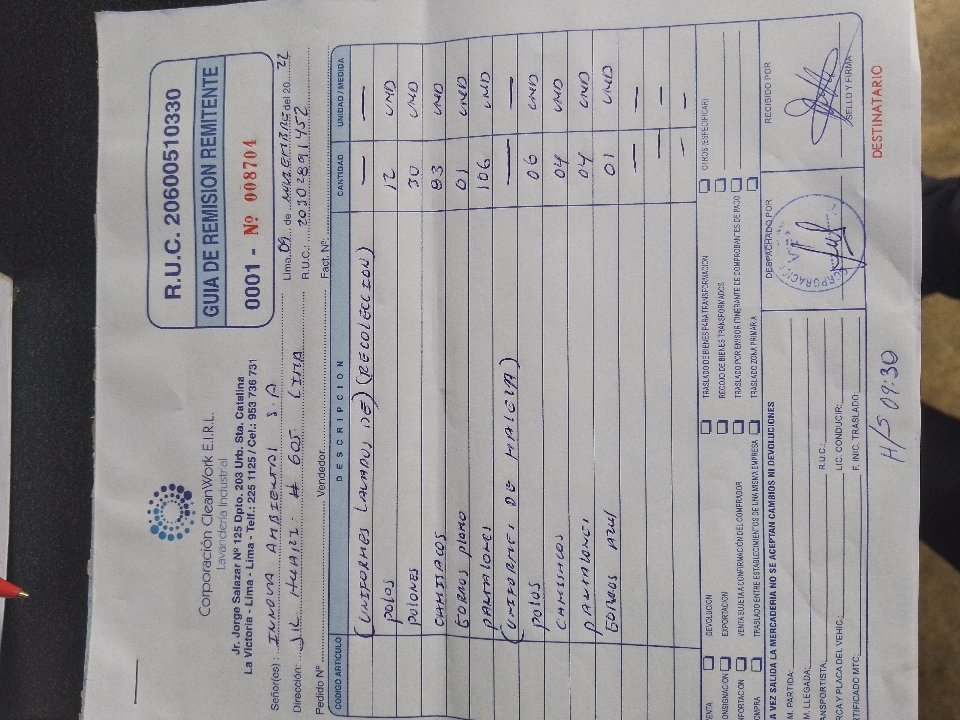 Corporación CleanWork E.I.R.L.
Lavandería Industrial
Jr. Jorge Salazar Nº 125 Dpto. 203 Urb. Sta. Catalina
La Victoria - Lima - Lima - Telf.: 225 1125 / Cel.: 953 736 731
R.U.C. 20600510330
GUIA DE REMISION REMITENTE
0001 - Nº 008704
Señor(es): INNOVA AMBIENTAL S.A
Lima, 09 de NOVIEMBRE del 2022
Dirección: JR HUARI # 605 LIMA
R.U.C.: 20302891452
Pedido Nº Vendedor. Fact. Nº.
CODIGO ARTICULO DESCRIPCION CANTIDAD UNIDAD / MEDIDA
(UNIFORMES LAVADOS DE) (RECOLECCION) — —
POLOS 12 UND
POLONES 30 UND
CAMISACOS 83 UND
GORROS PLOMO 01 UND
PANTALONES 106 UND
(UNIFORMES DE MAICVA) — —
POLOS 06 UND
CAMISACOS 04 UND
PANTALONES 04 UND
GORROS AZUL 01 UND
— —
— —
— —
VENTA DEVOLUCION TRASLADO DE BIENES PARA TRANSFORMACION OTROS (ESPECIFICAR)
CONSIGNACION EXPORTACION RECOJO DE BIENES TRANSFORMADOS
IMPORTACION VENTA SUJETA A CONFIRMACIÓN DEL COMPRADOR TRASLADO POR EMISOR ITINERANTE DE COMPROBANTES DE PAGO
COMPRA TRASLADO ENTRE ESTABLECIMIENTOS DE UNA MISMA EMPRESA TRASLADO ZONA PRIMARIA
A VEZ SALIDA LA MERCADERIA NO SE ACEPTAN CAMBIOS NI DEVOLUCIONES
DESPACHADO POR
RECIBIDO POR
M. PARTIDA:
M. LLEGADA:
NSPORTISTA: R.U.C.:
RCA Y PLACA DEL VEHIC.: LIC. CONDUCIR:
RTIFICADO MTC: F. INIC. TRASLADO:
CORPORACION
SELLO Y FIRMA
H/S 09:30
DESTINATARIO